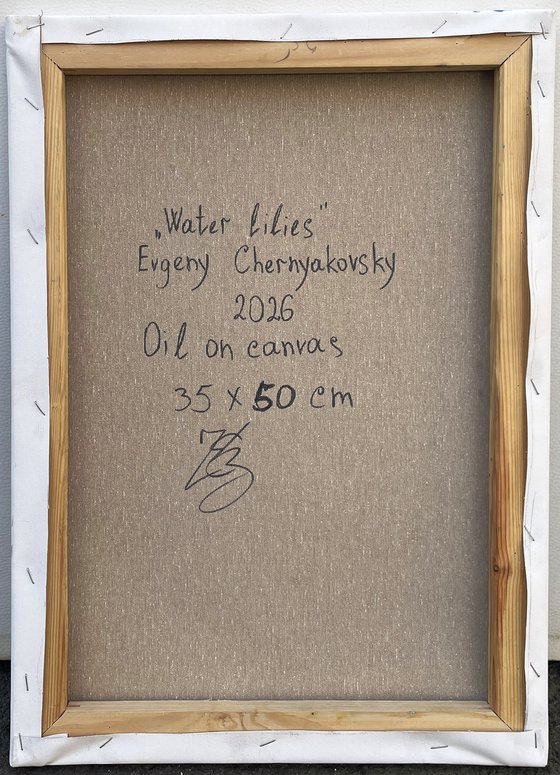 „Water lilies"
Evgeny Chernyakovsky
2026
Oil on canvas
35 x 50 cm